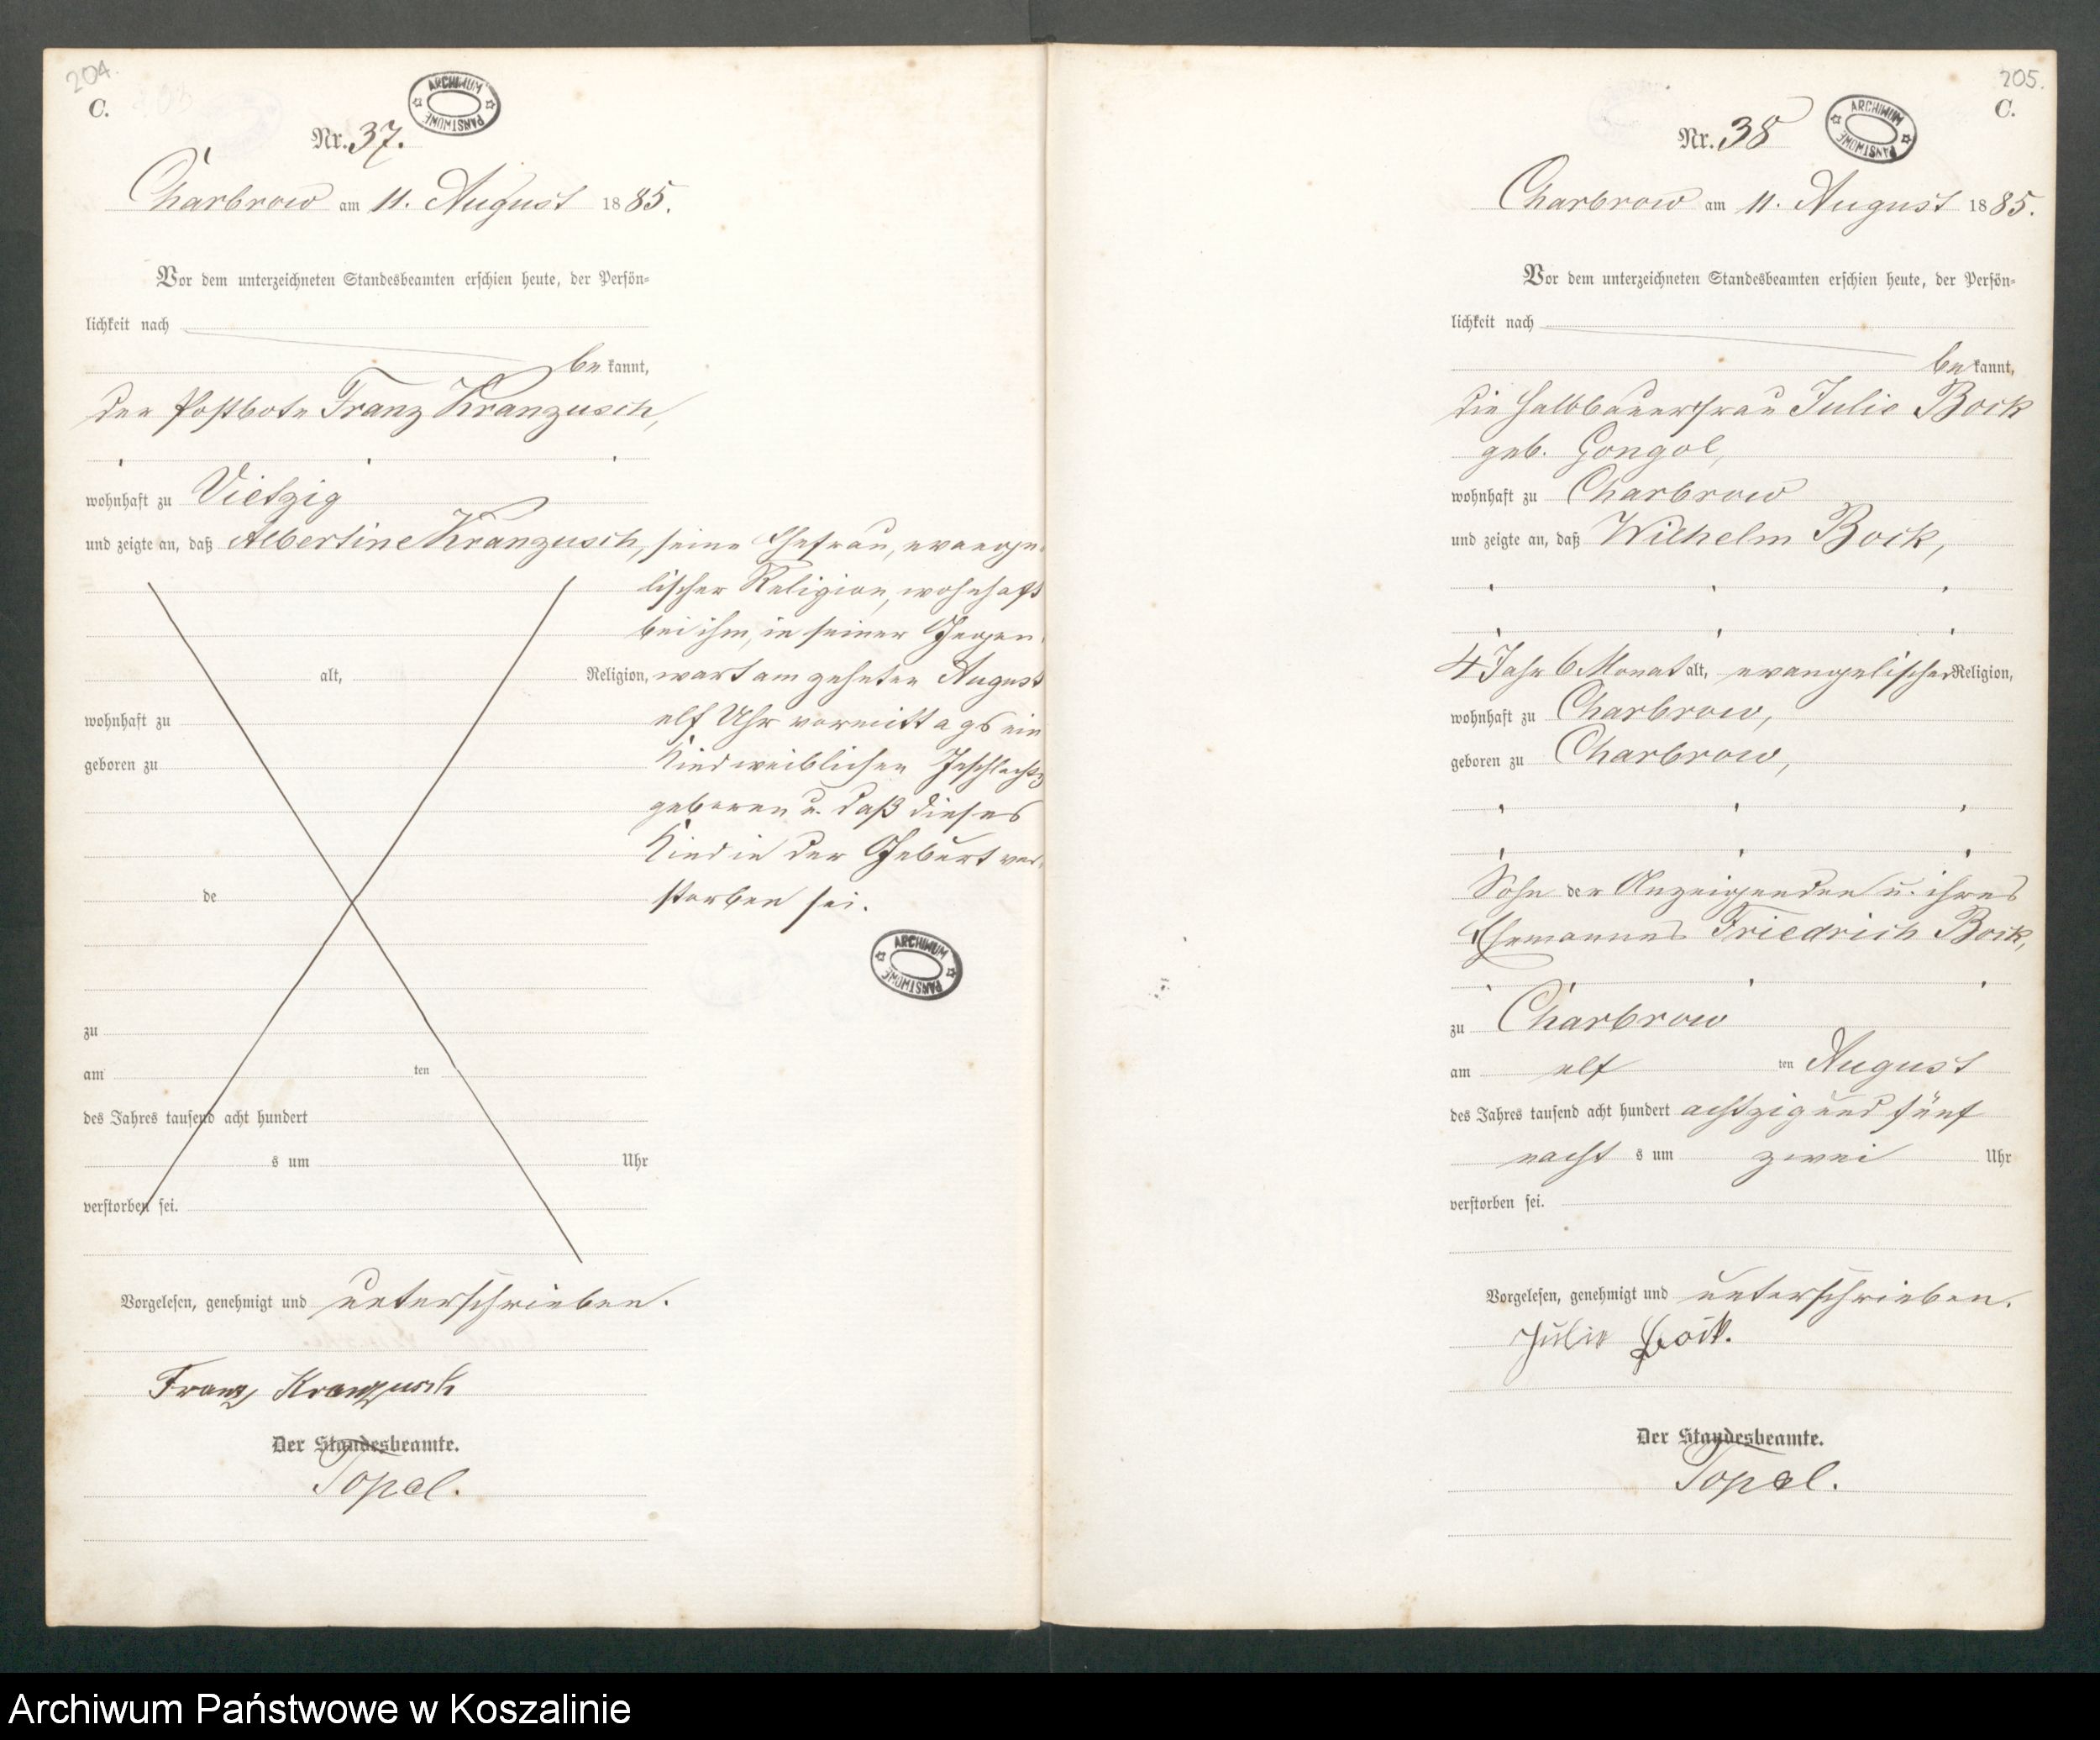 204.
C.
ARCHIWUM PAŃSTWOWE
Nr. 37.
Charbrow am 11. August 1885.
Vor dem unterzeichneten Standesbeamten erschien heute, der Persön-
lichkeit nach
be kannt,
der Postbote Franz Kranzusch,
wohnhaft zu Vietzig
und zeigte an, daß Albertine Kranzusch, seine Ehefrau, evange-
lischer Religion, wohnhaft
bei ihm, in seiner Gegen-
alt, Religion, wart am zehnten August
wohnhaft zu elf Uhr vormittags ein
geboren zu Kind weiblichen Geschlechts
geboren u. daß dieses
Kind in der Geburt ver-
de storben sei.
ARCHIWUM PAŃSTWOWE
zu
am ten
des Jahres tausend acht hundert
s um Uhr
verstorben sei.
Vorgelesen, genehmigt und unterschrieben.
Franz Kranzusch
Der Standesbeamte.
Topel.
205.
C.
ARCHIWUM PAŃSTWOWE
Nr. 38
Charbrow am 11. August 1885.
Vor dem unterzeichneten Standesbeamten erschien heute, der Persön-
lichkeit nach
be kannt,
die Halbbauerfrau Julie Bock
geb. Gongol,
wohnhaft zu Charbrow
und zeigte an, daß Wilhelm Bock,
4 Jahr 6 Monat alt, evangelischer Religion,
wohnhaft zu Charbrow,
geboren zu Charbrow,
Sohn der Anzeigenden u. ihres
Ehemannes Friedrich Bock,
zu Charbrow
am elf ten August
des Jahres tausend acht hundert achtzig und fünf
nacht s um zwei Uhr
verstorben sei.
Vorgelesen, genehmigt und unterschrieben.
Julie Bock.
Der Standesbeamte.
Topel.
Archiwum Państwowe w Koszalinie